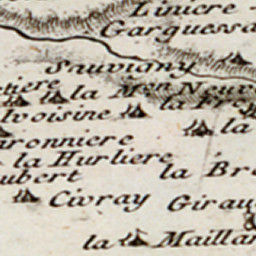 Liniere
Garguessa
Sauvigny
tiere
la Mon Neuv
la Fre
lvoisine
la
ronniere
la Hurliere
ubert
la Bre
Civray
Girau
la Maillar